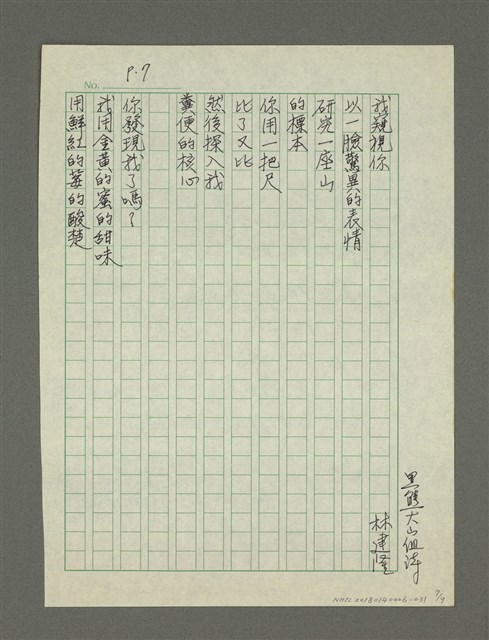 No. P.7
我窺視你
以一臉驚異的表情
研究一座山
的標本
你用一把尺
比了又比
然後探入我
糞便的核心
你發現我了嗎？
我用金黃的蜜的甜味
用鮮紅的莓的酸楚
黑熊大山組詩
林建隆
NMTL20180140006-031
7/7